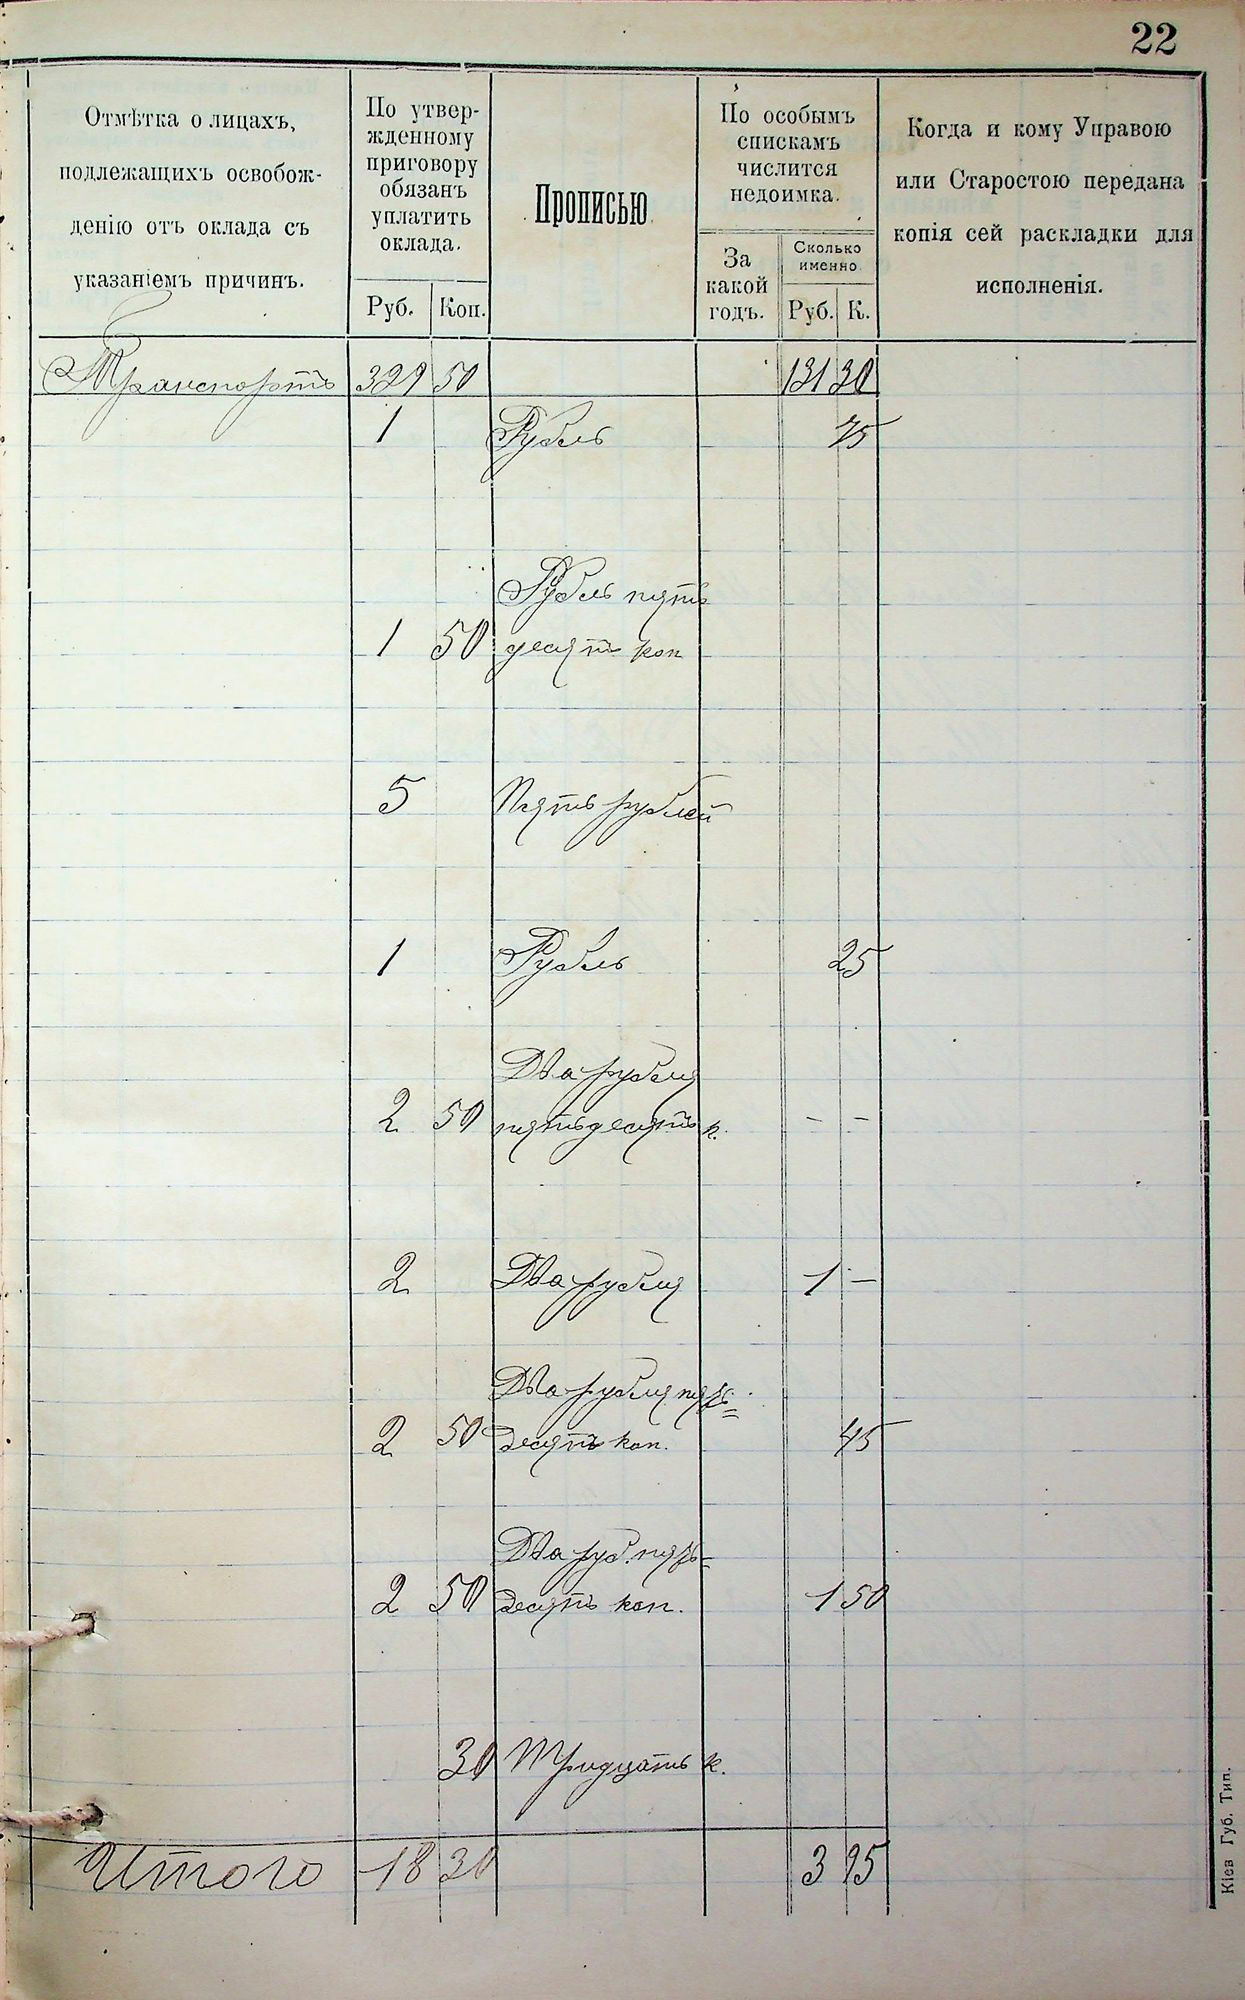 22
Отмѣтка о лицахъ,
подлежащихъ освобож-
денію отъ оклада съ
указаніемъ причинъ.
По утвер-
жденному
приговору
обязанъ
уплатить
оклада.
Руб. Коп.
Прописью
По особымъ
спискамъ
числится
недоимка.
За
какой
годъ.
Сколько
именно
Руб. К.
Когда и кому Управою
или Старостою передана
копія сей раскладки для
исполненія.
Транспортъ 329 50 131 30
1 Рубль 75
Рубль пять
1 50 десятъ коп
5 Пять рублей
1 Рубль 25
Два рубля
2 50 пятьдесятъ к. - -
2 Два рубля 1 -
Два рубля пять=
2 50 десятъ коп. 45
Два руб. пять=
2 50 десятъ коп. 1 50
30 Тридцать к.
Итого 18 30 3 95
Кіев Губ. Тип.